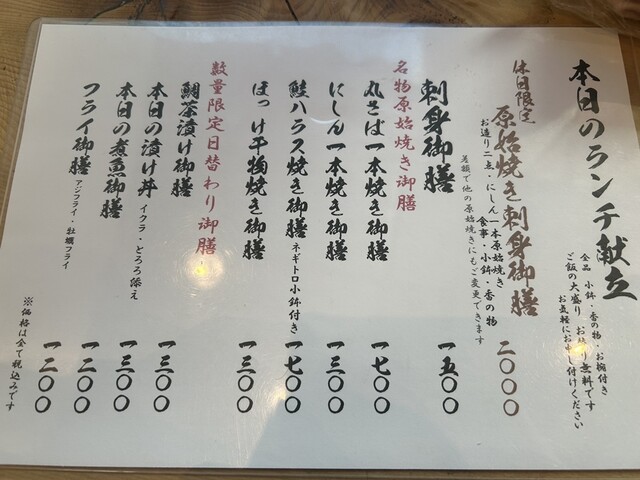 本日のランチ献立
全品 小鉢・香の物・お椀付き
ご飯の大盛り お替り無料です
お気軽にお申し付けください
休日限定
原始焼き刺身御膳 二〇〇〇
お造り二点・にしん一本原始焼き
食事・小鉢・香の物
差額で他の原始焼きにもご変更できます
刺身御膳 一五〇〇
名物原始焼き御膳
丸さば一本焼き御膳 一七〇〇
にしん一本焼き御膳 一三〇〇
鮭ハラス焼き御膳 ネギトロ小鉢付き 一七〇〇
ほっけ干物焼き御膳 一三〇〇
数量限定日替わり御膳
鯛茶漬け御膳 一三〇〇
本日の漬け丼 イクラ・とろろ添え 一三〇〇
本日の煮魚御膳 一三〇〇
フライ御膳 アジフライ・牡蠣フライ 一二〇〇
※価格は全て税込みです 一二〇〇